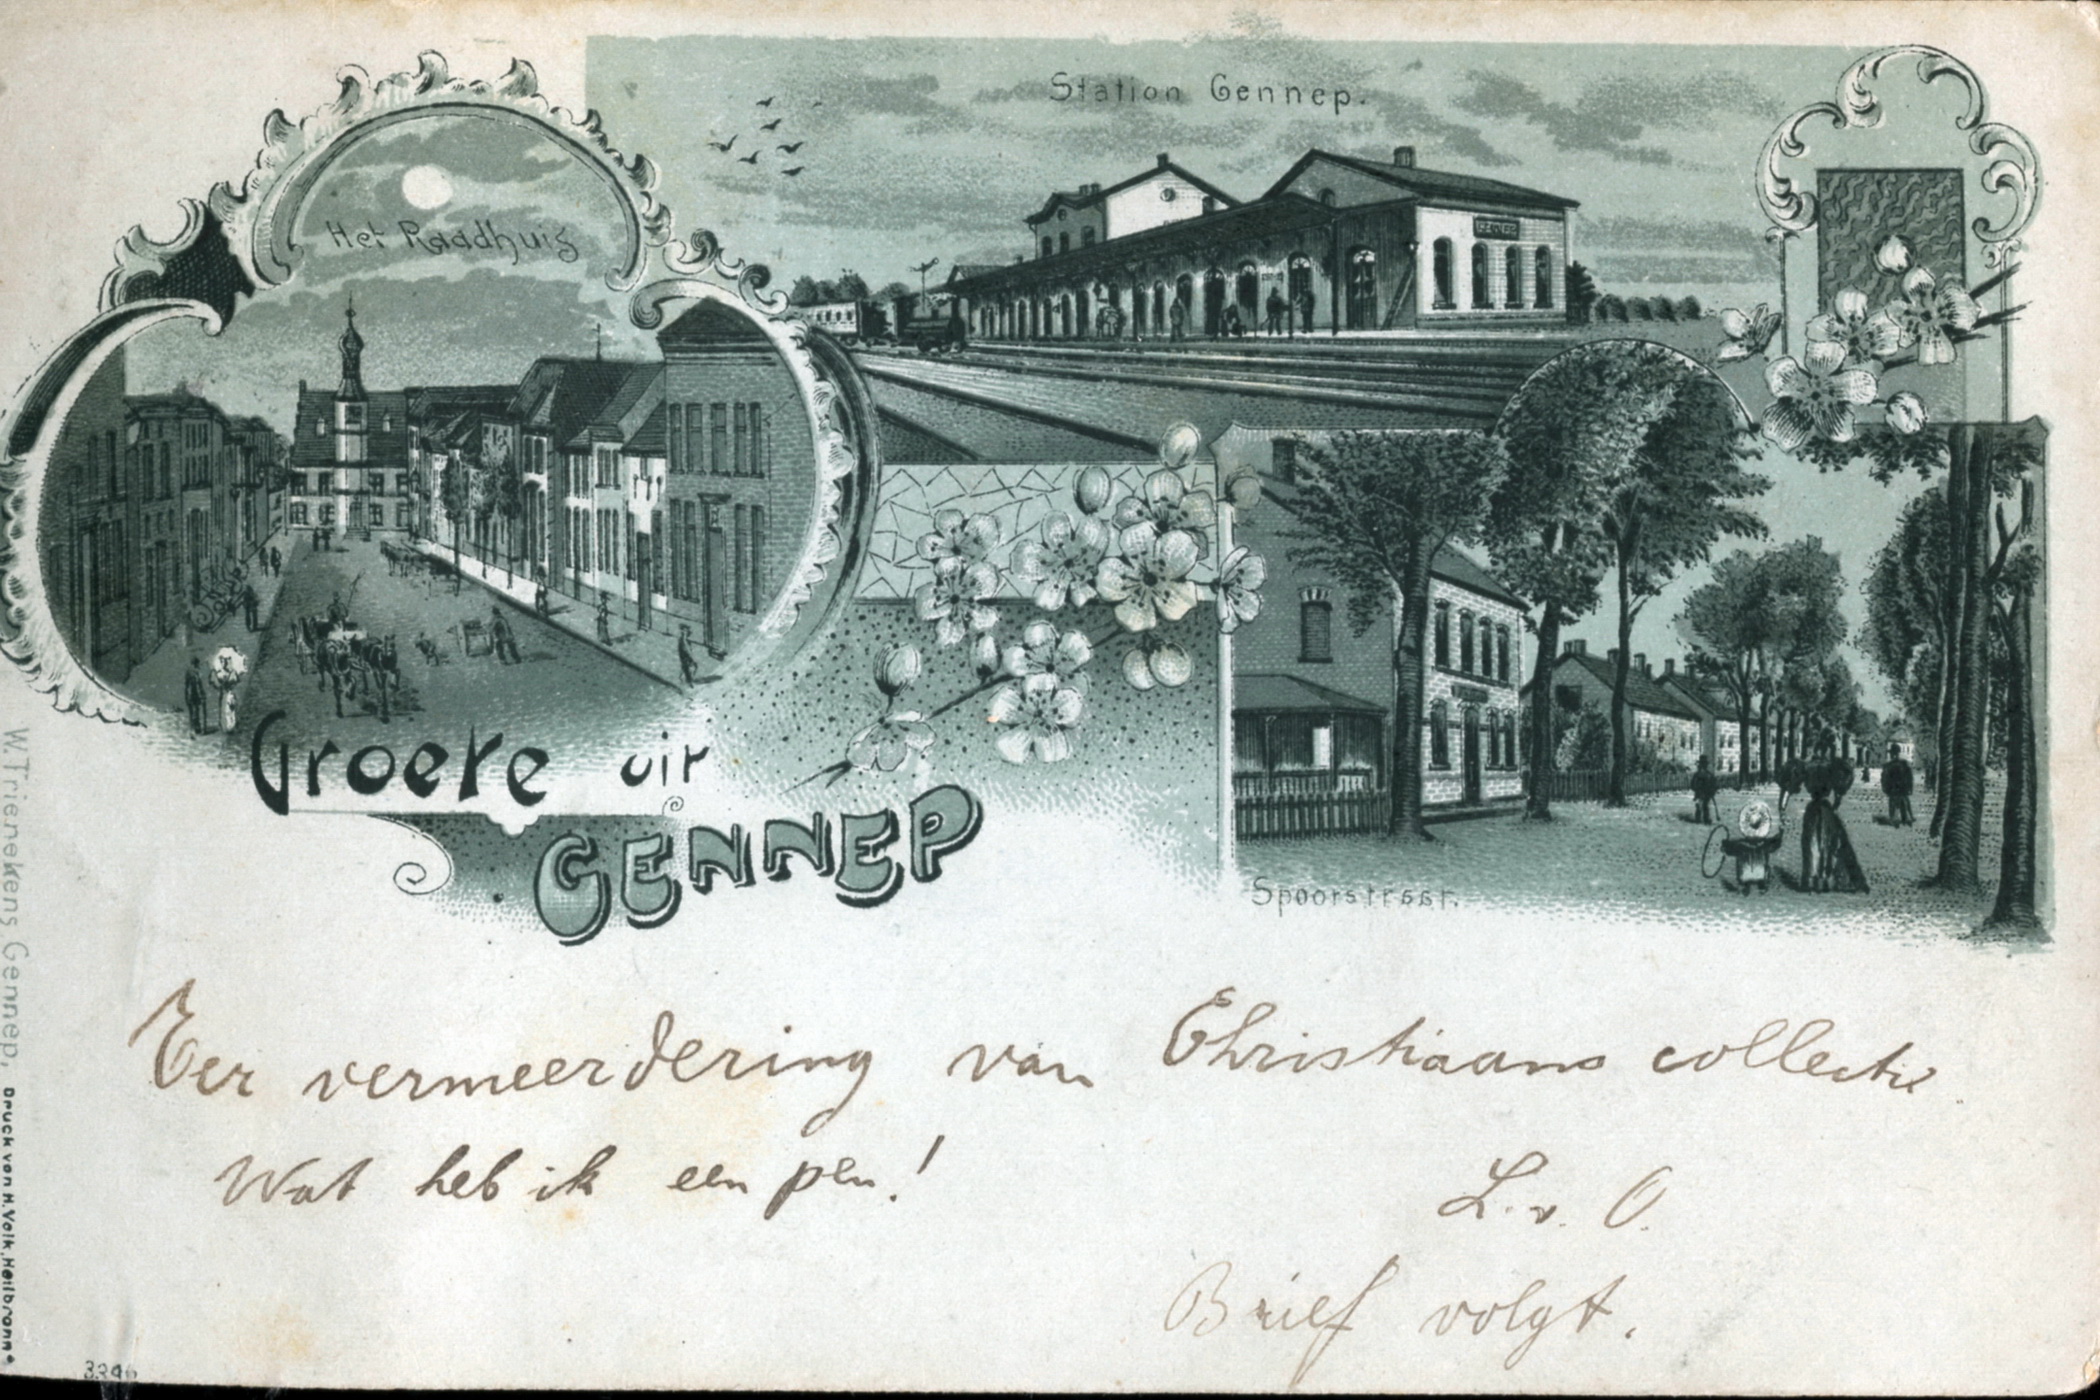 Station Gennep.
Het Raadhuis
GENNEP
Groete uit
GENNEP
Spoorstraat.
Ter vermeerdering van Christiaans collectie
Wat heb ik een pen!
L. v. O.
Brief volgt.
W.Trienekens Gennep, Druck von H.Volk, Heilbronn.